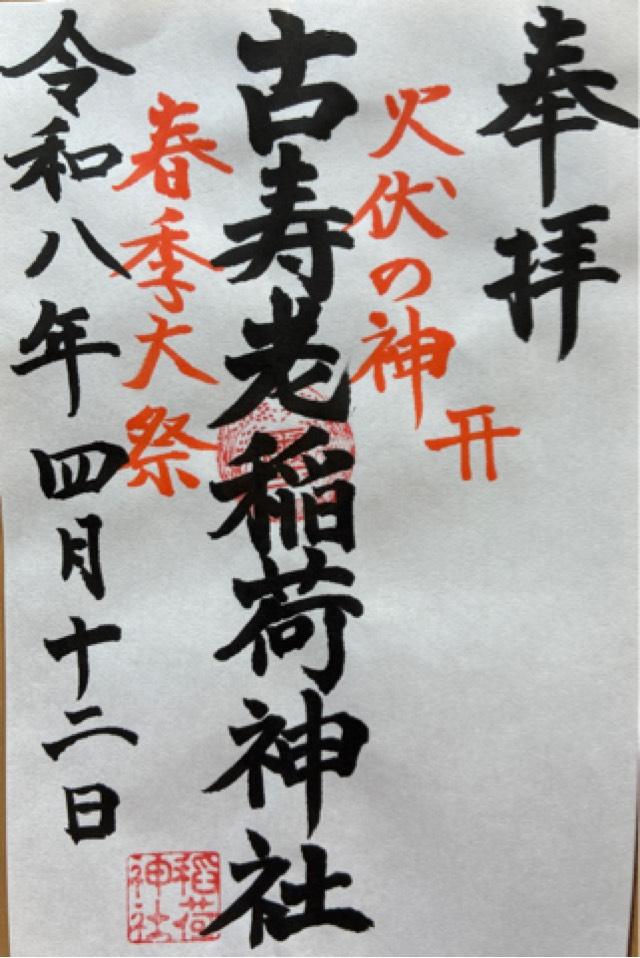 奉拝
火伏の神
古寿老稲荷神社
春季大祭
令和八年四月十二日
稲荷
神社